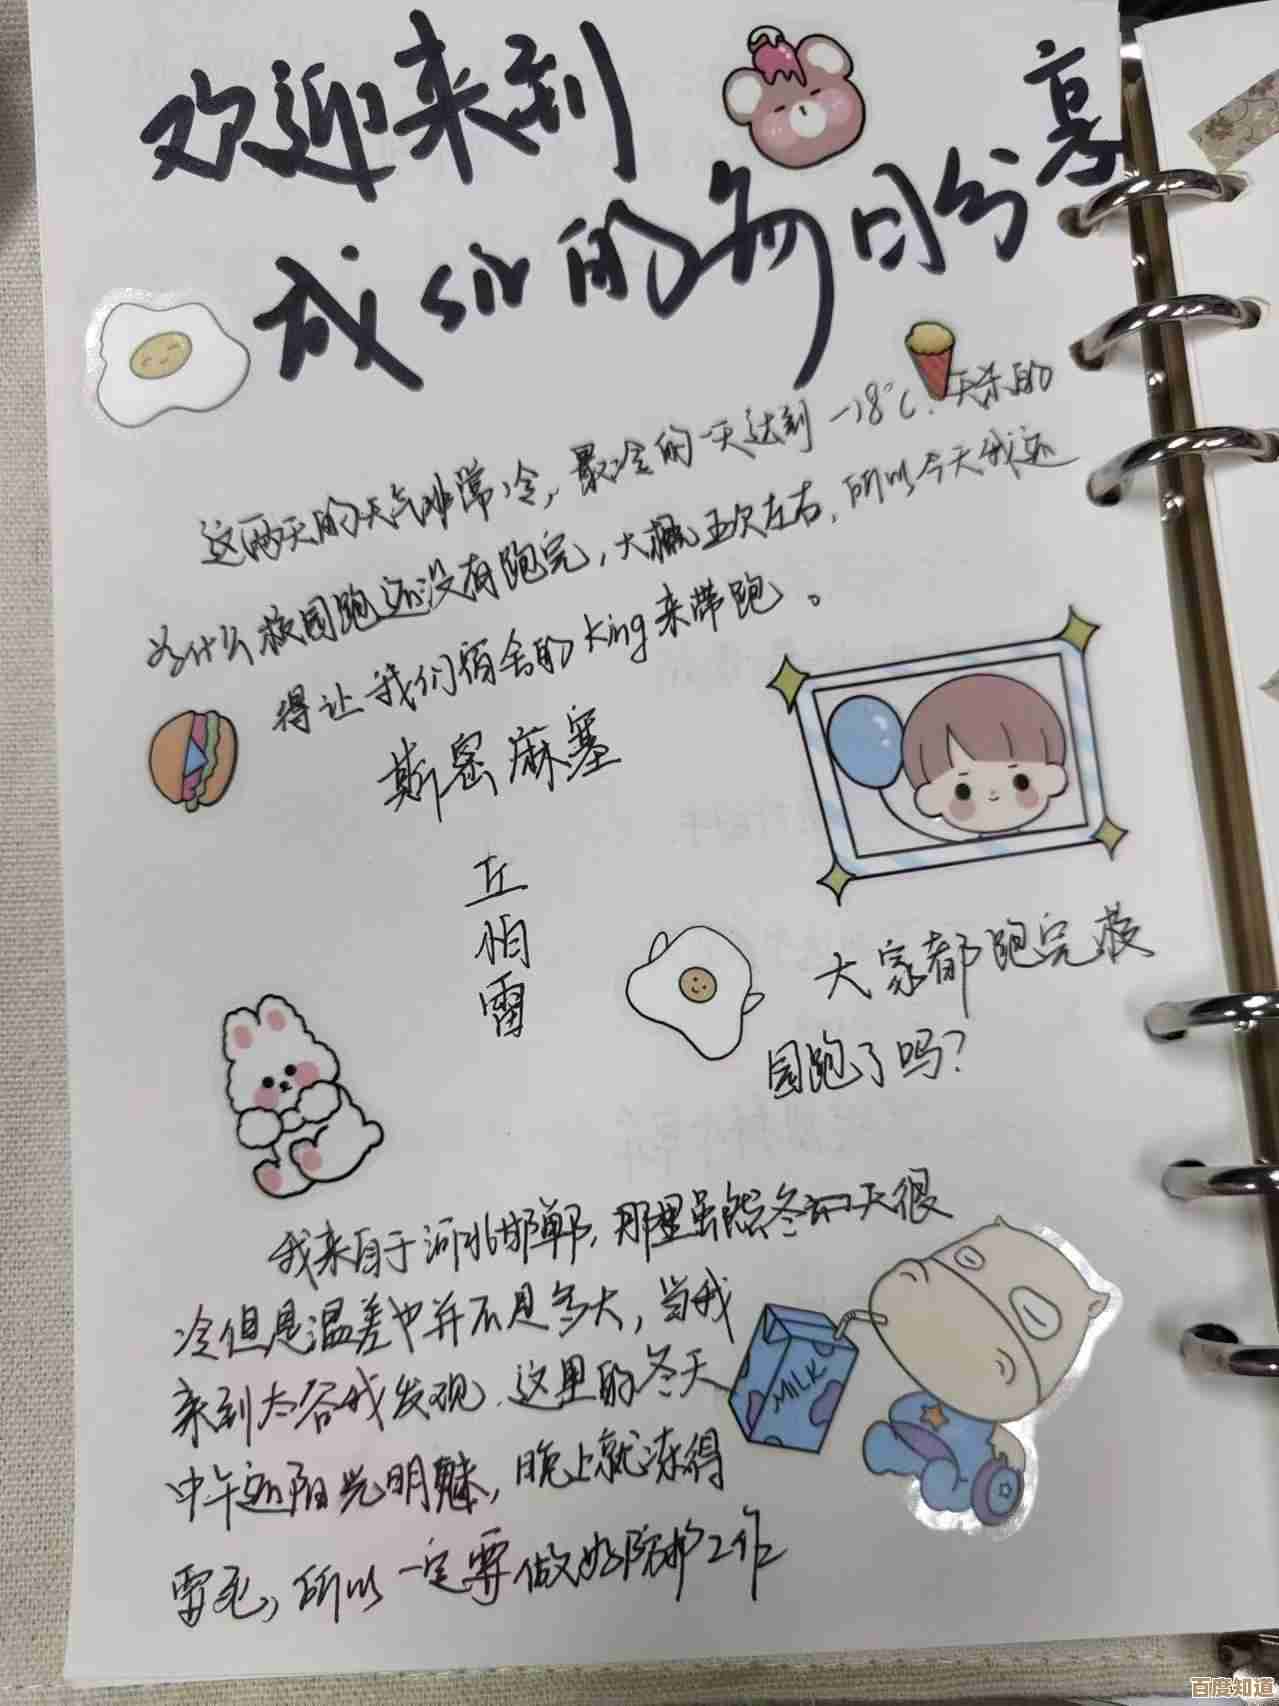 欢迎来到
成sir的每日分享
这两天的天气非常冷，最冷的一天达到-18℃．天杀的
为什么校园跑还没有跑完，大概五次左右，所以今天我还
得让我们宿舍的king来带跑。
斯密麻塞
丘
怕
雷
大家都跑完校
园跑了吗？
我来自于河北邯郸，那里虽然冬天很
冷但是温差也并不是多大，当我
来到太谷我发现，这里的冬天
中午还阳光明魅，晚上就冻得
雷死，所以一定要做好防护工作
MILK
百度知道